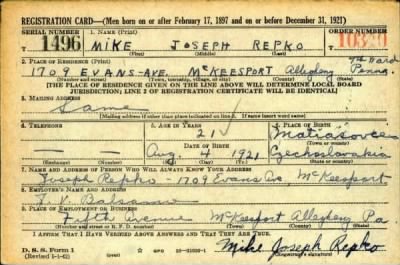 REGISTRATION CARD—(Men born on or after February 17, 1897 and on or before December 31, 1921)
SERIAL NUMBER 1. NAME (Print) ORDER NUMBER
T 1496 MIKE JOSEPH REPKO T
(First) (Middle) (Last)
2. PLACE OF RESIDENCE (Print) 9th Ward
1709 EVANS-AVE. McKEESPORT Allegheny Penna.
(Number and street) (Town, township, village, or city) (County) (State)
[THE PLACE OF RESIDENCE GIVEN ON THE LINE ABOVE WILL DETERMINE LOCAL BOARD
JURISDICTION; LINE 2 OF REGISTRATION CERTIFICATE WILL BE IDENTICAL]
3. MAILING ADDRESS
Same
4. TELEPHONE 5. AGE IN YEARS 6. PLACE OF BIRTH
21 Matiašovce
DATE OF BIRTH (Town or county)
Aug. 4 1921 Czechoslovakia
(Exchange) (Number) (Mo.) (Day) (Yr.) (State or country)
7. NAME AND ADDRESS OF PERSON WHO WILL ALWAYS KNOW YOUR ADDRESS
Joseph Repko - 1709 Evans Av, McKeesport
8. EMPLOYER'S NAME AND ADDRESS
Balsamo
9. PLACE OF EMPLOYMENT OR BUSINESS
Fifth Avenue McKeesport Allegheny Pa
(Number and street or R. F. D. number) (Town) (County) (State)
I AFFIRM THAT I HAVE VERIFIED ABOVE ANSWERS AND THAT THEY ARE TRUE.
D. S. S. Form 1
(Revised 1-1-42) Mike Joseph Repko
(Registrant's signature)